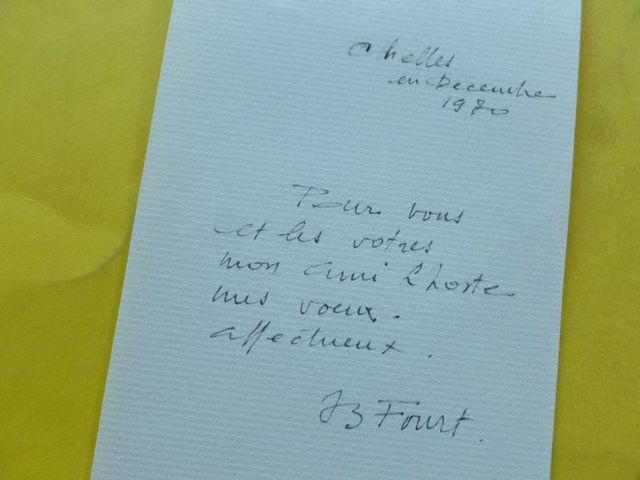 Chelles
en Decembre
1970
Pour vous
et les votres
mon ami Lhoste
mes voeux.
affectueux.
JB Fourt.